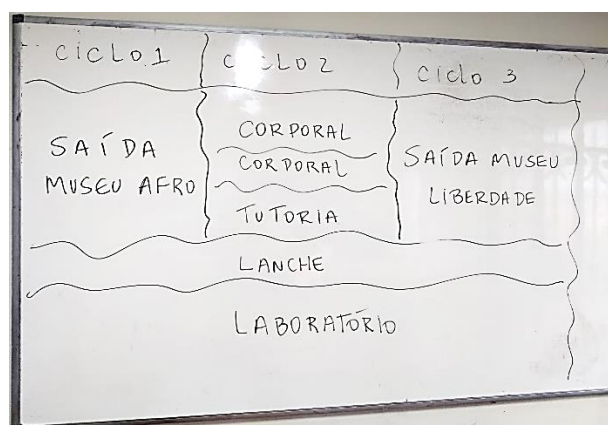 CICLO 1
CICLO 2
CICLO 3
SAÍDA
MUSEU AFRO
CORPORAL
CORPORAL
TUTORIA
SAÍDA MUSEU
LIBERDADE
LANCHE
LABORATÓRIO